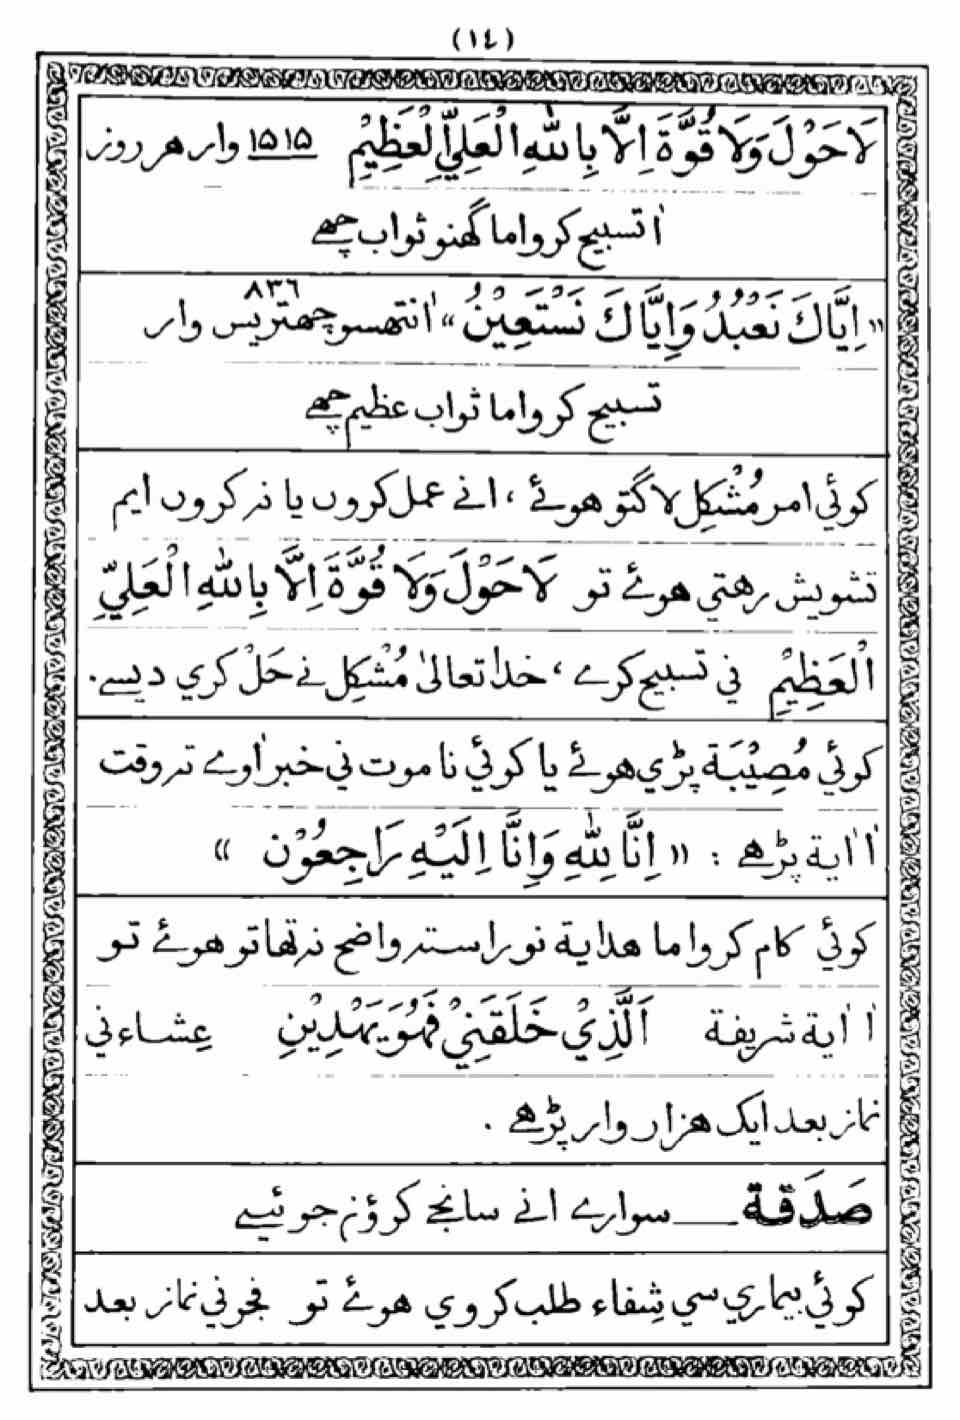 (١٤)
لَاحَوْلَ وَلَا قُوَّةَ اِلَّا بِاللهِ الْعَلِيِّ الْعَظِيْمِ ١٥١٥ وار هر روز
اٰ تسبيح كرواما گهنو ثواب چھے
«اِيَّاكَ نَعْبُدُ وَاِيَّاكَ نَسْتَعِيْنُ» اٰنتهسو چھتريس ٨٣٦ وار
تسبيح كرواما ثواب عظيم چھے
كوئي امر مُشْكِل لاگتو هوئے ، انے عمل كروں يا نہ كروں ايم
تشويش رهتي هوئے تو لَاحَوْلَ وَلَا قُوَّةَ اِلَّا بِاللهِ الْعَلِيِّ
الْعَظِيْمِ ني تسبيح كرے ، خدا تعالىٰ مُشْكِل نے حَلْ كري ديسے.
كوئي مُصِيْبَة پڑي هوئے يا كوئي نا موت ني خبر اٰوے تہ وقت
اٰ اٰية پڑھے : «اِنَّا لِلّٰهِ وَاِنَّا اِلَيْهِ رَاجِعُوْن»
كوئي كام كرواما هداية نو راستہ واضح نہ تھاتو هوئے تو
اٰ اٰية شريفة اَلَّذِيْ خَلَقَنِيْ فَهُوَ يَهْدِيْنِ عِشاء ني
نماز بعد ايک هزار وار پڑھے .
صَدَقة ــــ سوارے انے سانجے كرؤنہ جوئيے
كوئي بيماري سي شِفاء طلب كروي هوئے تو فجر ني نماز بعد